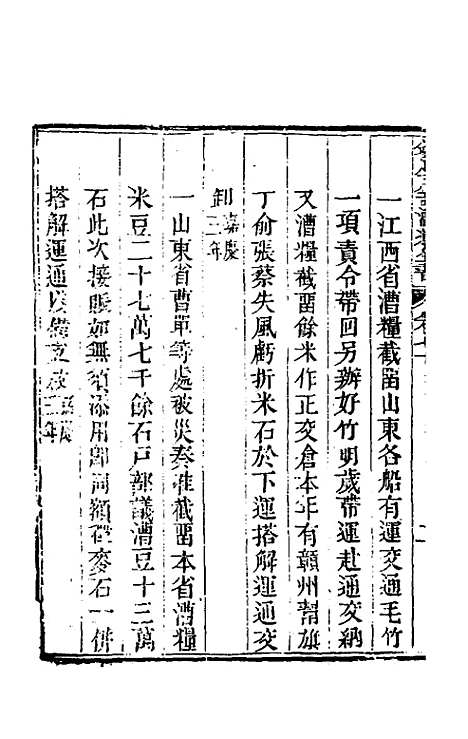 一江西省漕糧截畱山東各船有運交通毛竹
一項責令帶回另辦好竹明歲帶運赴通交納
又漕糧截畱餘米作正交倉本年有贛州幫旗
丁俞張蔡失風虧折米石於下運搭解運通交
卸嘉慶三年
一山東省曹單等處被災奏准截畱本省漕糧
米豆二十七萬七千餘石戶部議漕豆十三萬
石此次接賑如無須添用卽同額徵麥石一併
搭解運通以備支放嘉慶三年